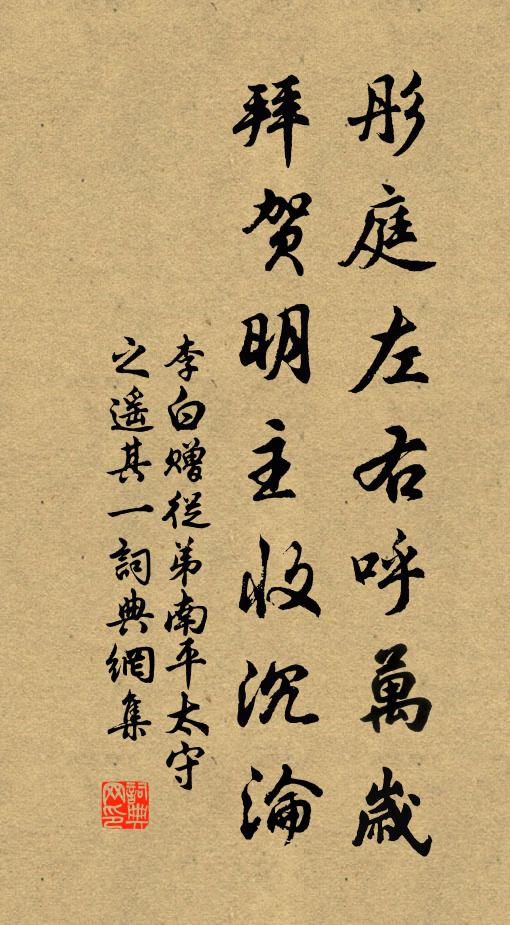 彤庭左右呼萬歲
拜贺明主收沉淪
李白赠從弟南平太守
之遥其一詞典網集
詞典网印